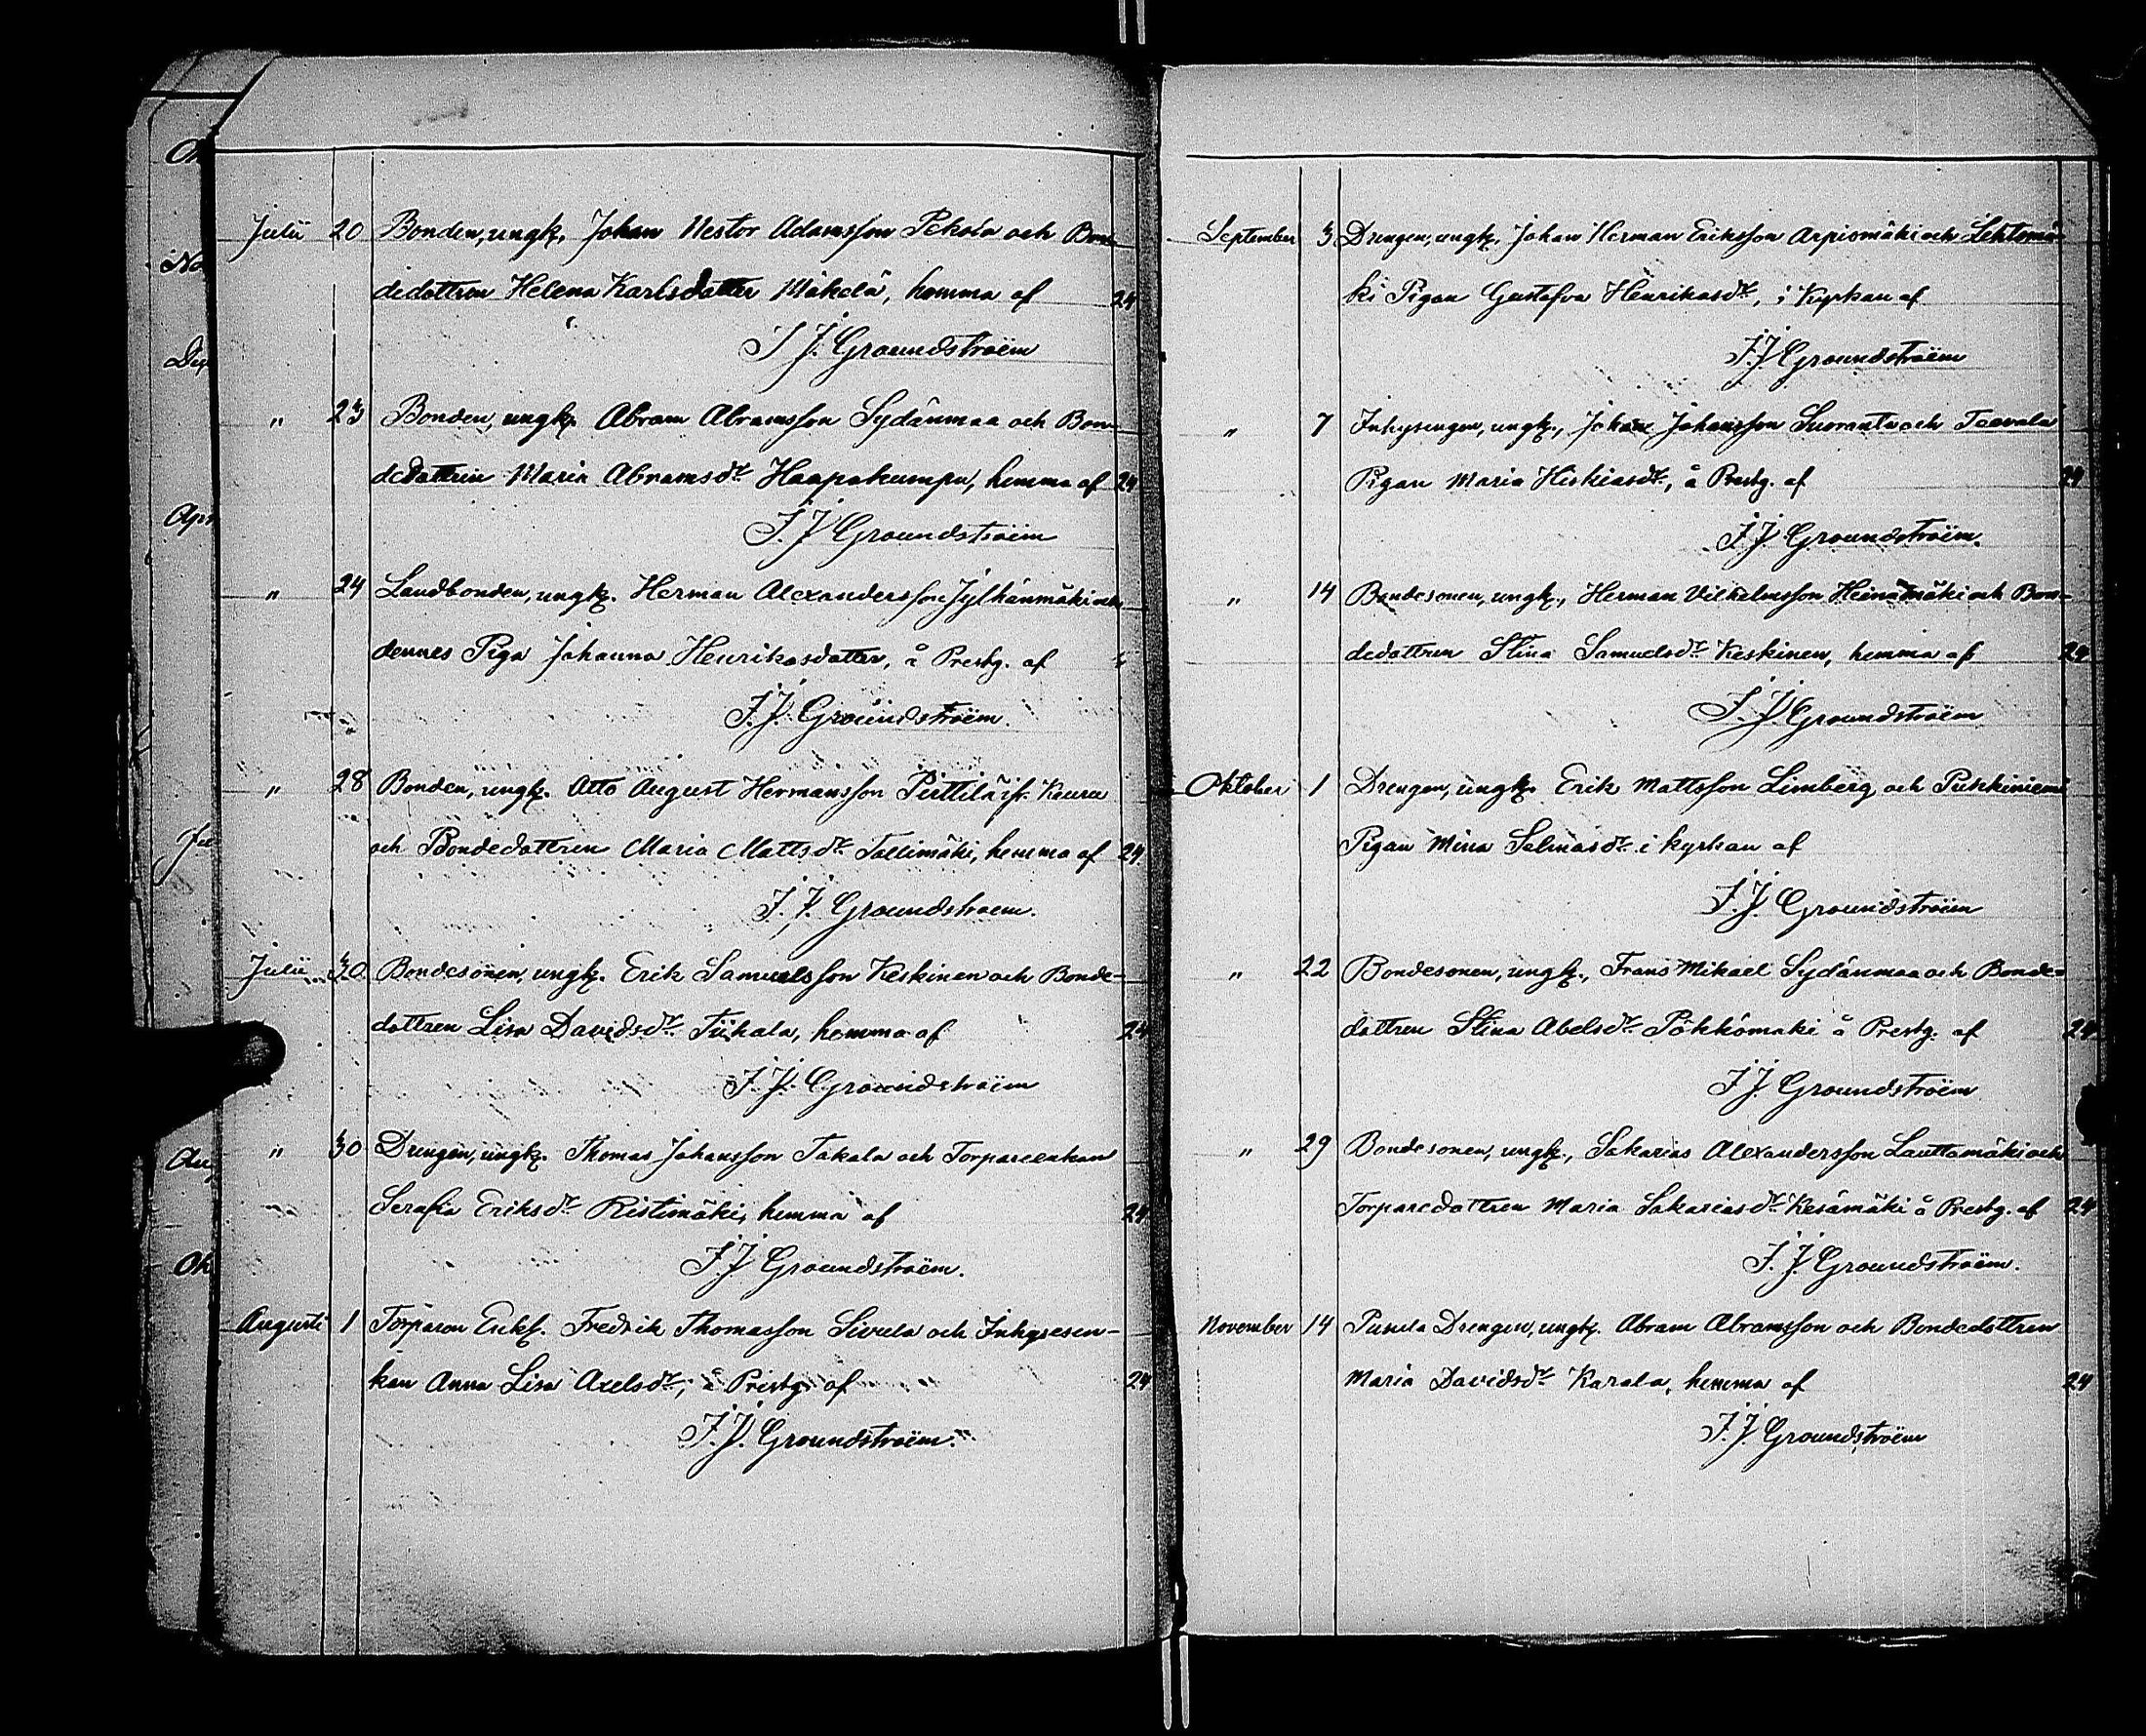 Julii 20 Bonden, ungk. Johan Nestor Adamsson Pekola och Bon-
dedottren Helena Karlsdotter Mäkelä, hemma af 24
J. J. Groundstroëm
" 23 Bonden, ungk. Abram Abramsson Sydänmaa och Bon-
dedottren Maria Abramsdr Haapakumpu, hemma af 24
J. J. Groundstroëm
" 24 Landbonden, ungk. Herman Alexandersson Jylhänmäki och
dennes Piga Johanna Henriksdotter, å Prestg. af
J. J. Groundstroëm.
" 28 Bonden, ungk. Otto August Hermansson Pirttilä ifr. Kaura
och Bondedottren Maria Mattsdr Tallimäki, hemma af 24.
J. J. Groundstroem.
Julii 30. Bondesonen, ungk. Erik Samuelsson Keskinen och Bonde-
dottren Lisa Davidsdr Tiikala, hemma af 24
J. J. Groundstroëm
" 30 Drengen, ungk. Thomas Johansson Takala och Torpareenkan
Serafia Eriksdr Ristimäki, hemma af 24
J. J. Groundstroëm.
Augusti 1 Torparen Enkl. Fredrik Thomasson Sivula och Inhysesen-
kan Anna Lisa Axelsdr, å Prestg. af 24
J. J. Groundstroëm.
September 3 Drengen, ungk. Johan Herman Eriksson Arpiomäki och Lehtomä-
ki Pigan Gustafva Henriksdr, i Kyrkan af
J. J. Groundstroëm
" 7 Inhysingen, ungk., Johan Johansson Suoranta och Taavala
Pigan Maria Hiskiasdr, å Prestg. af 24
J. J. Groundstroëm.
" 14 Bondesonen, ungk., Herman Vilhelmsson Heinämäki och Bon-
dedottren Stina Samuelsdr Keskinen, hemma af 24
J. J. Groundstroëm
Oktober 1 Drengen, ungk. Erik Mattsson Limberg och Puskiniemi
Pigan Mina Salmasdr i kyrkan af
J. J. Groundstroëm
" 22 Bondesonen, ungk., Frans Mikael Sydänmaa och Bonde-
dottren Stina Abelsdr Pökkömäki å Prestg. af 24
J. J. Groundstroëm
" 29 Bondesonen, ungk., Sakarias Alexandersson Lauttamäki och
Torparedottren Maria Sakariasdr Kesämäki å Prestg. af 24
J. J. Groundstroëm.
November 14 Drengen, ungk. Abram Abramsson och Bondedottren
Maria Davidsdr Karala, hemma af 24
J. J. Groundstroëm